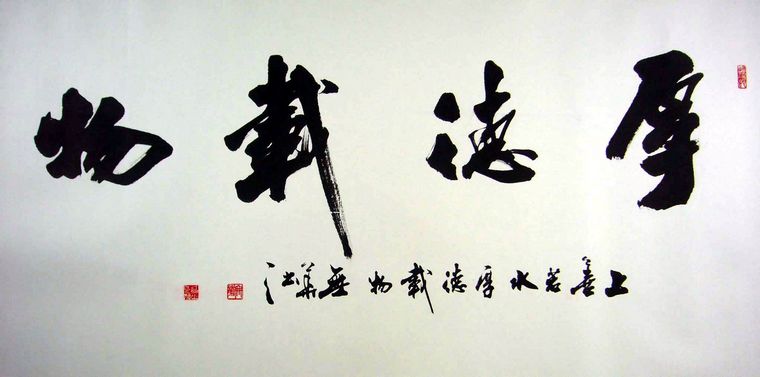 厚德載物
上善若水厚德載物無華